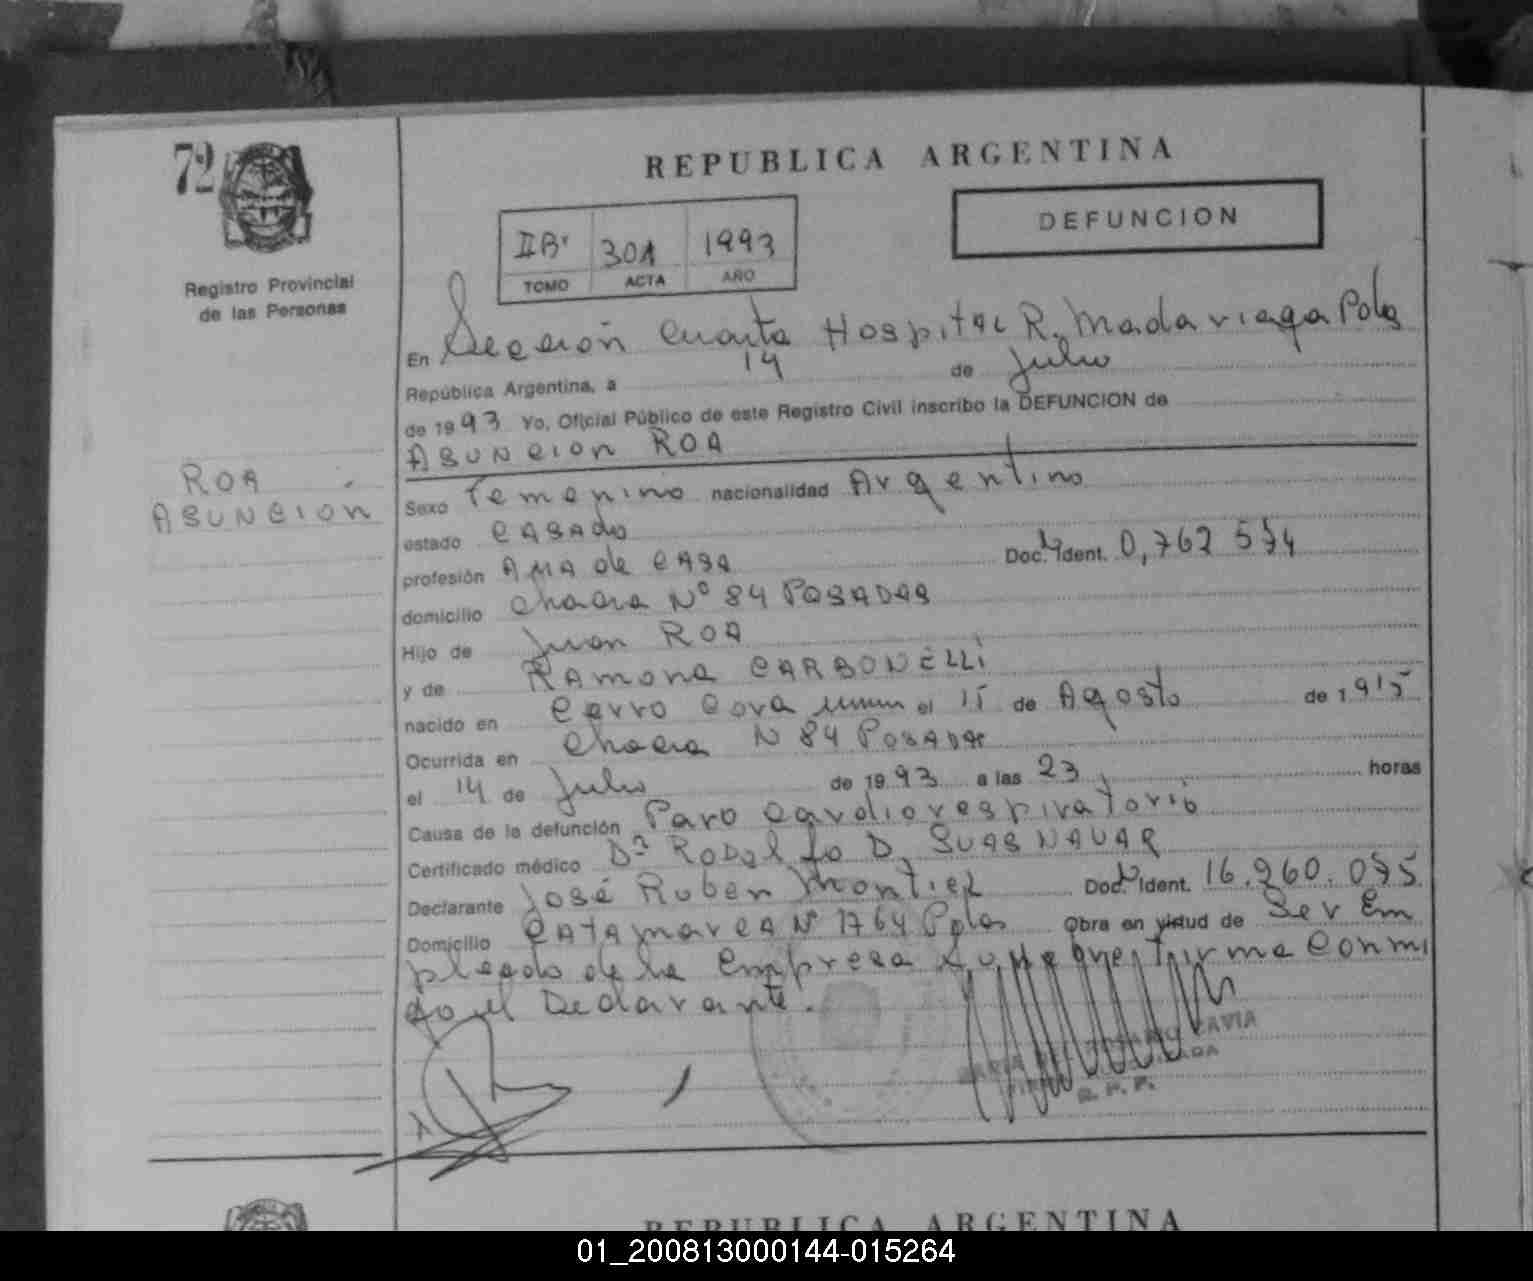 72
REPUBLICA ARGENTINA
DEFUNCION
IIBº 301 1993
TOMO ACTA AÑO
Registro Provincial
de las Personas
En Sección Cuarta Hospital R. Madariaga Pdas
República Argentina, a 14 de Julio
de 1993 Yo, Oficial Público de este Registro Civil inscribo la DEFUNCION de
ASUNCION ROA
ROA
ASUNCION
Sexo Femenino nacionalidad Argentino
estado CASADO
profesión AMA de CASA Doc. Ident. 0,762 574
domicilio Chacra Nº 84 POSADAS
Hijo de Juan ROA
y de RAMONA CARBONELLI
nacido en Cerro Cora el 15 de Agosto de 1915
Ocurrida en Chacra N 84 POSADAS
el 14 de Julio de 1993 a las 23 horas
Causa de la defunción Paro cardiorespiratorio
Certificado médico Dr RODOLFO D. SUASNAVAR
Declarante José Ruben Montiel Doc. Ident. 16.960.075
Domicilio CATAMARCA Nº 1764 Pdas Obra en virtud de Ser Em
pleado de la Empresa que firma Conmi
go el Declarante.
CAVIA
R. P. P.
REPUBLICA ARGENTINA
01_200813000144-015264